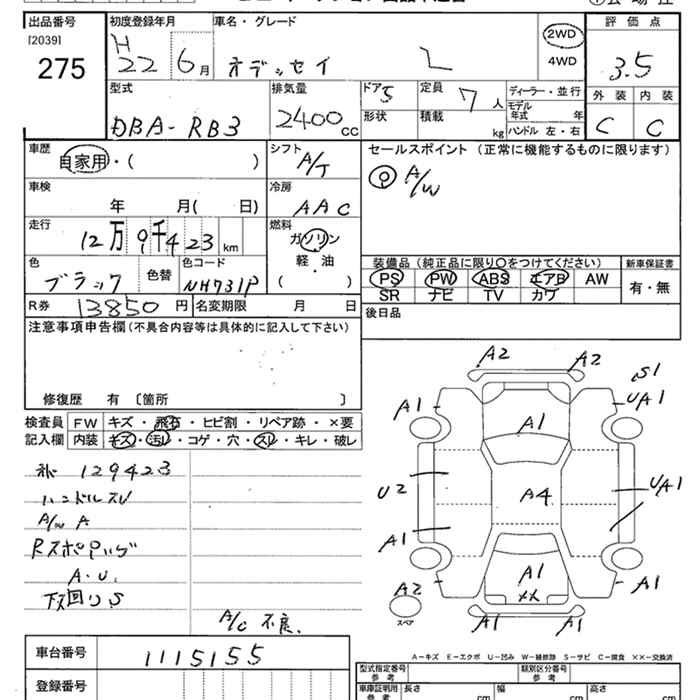 出品番号 初度登録年月 車名・グレード 2WD 評価点
[2039]
275
H 22 6月 オデッセイ L 4WD 3.5
型式 排気量 ドア 5 定員 7人 ディーラー・並行 外装 内装
DBA-RB3 2400cc 形状 積載 kg モデル年式 年 C C
ハンドル 左・右
車歴 自家用・( ) シフト A/T セールスポイント (正常に機能するものに限ります)
A/W
車検 年 月( 日) 冷房 AAC
走行 12万9千423km 燃料 ガソリン
軽・油
( )
装備品(純正品に限り〇をつけてください) 新車保証書
色 ブラック 色替 色コード NH731P
PS PW ABS エアB AW 有・無
SR ナビ TV カワ
R券 13850円 名変期限 月 日 後日品
注意事項申告欄(不具合内容等は具体的に記入して下さい)
修復歴 有 〔箇所 〕
検査員 FW キズ・飛石・ヒビ割・リペア跡・×要
記入欄 内装 キズ・汚レ・コゲ・穴・スレ・キレ・破レ
129423
ハンドルスレ
A/W A
A.U.
下回りS
A/C 不良
A2 A2
S1
A1 A1 UA1
U2 A4 UA1
A1 A1 A1
A2 ××
スペア
A1 A1
A-キズ E-エクボ U-凹み W-補修跡 S-サビ C-腐食 ××-交換済
車台番号 1115155
登録番号
型式指定番号 参考 類別区分番号 参考
車庫証明用 参考 長さ cm 幅 cm 高さ cm